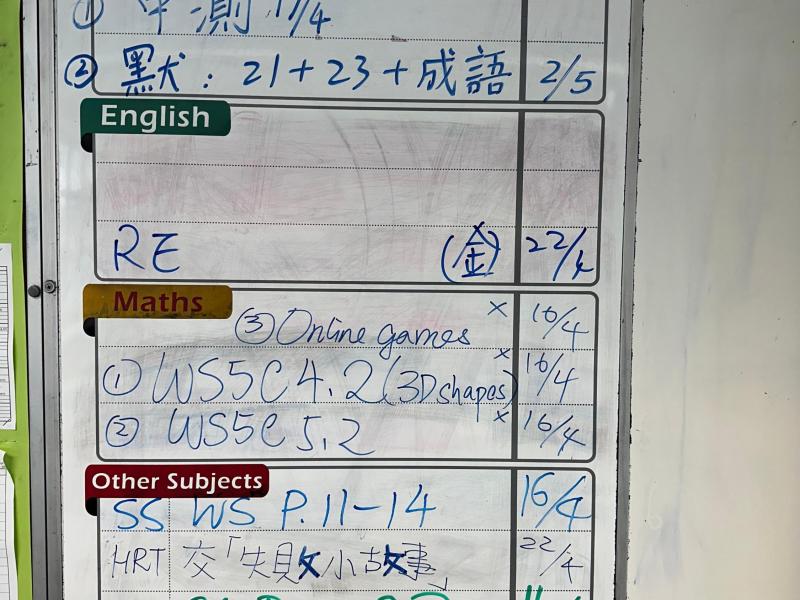 ① 中測 17/4
② 默: 21+23+成語 2/5
English
RE (金) 22/4
Maths
③ Online games × 16/4
① WS5C4.2(3D shapes) × 16/4
② WS5C 5.2 × 16/4
Other Subjects
SS WS P.11-14 16/4
HRT 交「失敗小故事」 22/4